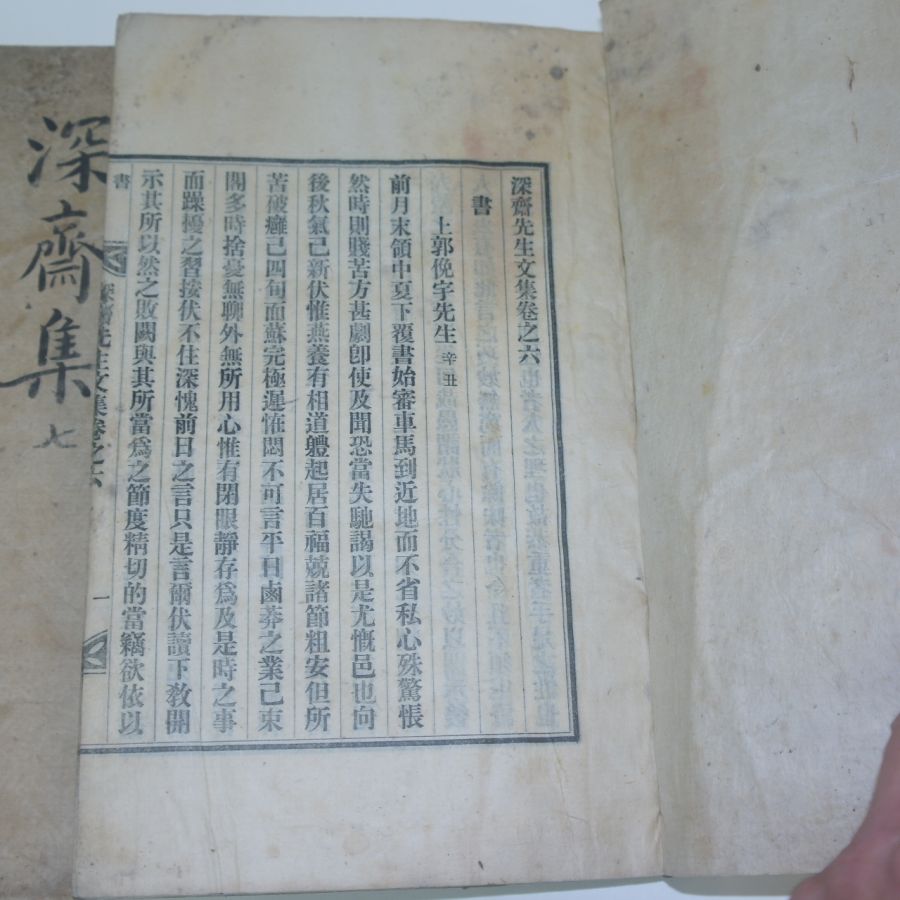 深齋先生文集卷之六
書
上郭俛宇先生 辛丑
前月末領中夏下覆書始審車馬到近地而不省私心殊驚悵
然時則賤苦方甚劇卽使及聞恐當失馳謁以是尤慨邑也向
後秋氣已新伏惟燕養有相道軆起居百福兢諸節粗安但所
苦破癰已四旬而蘇完極遲恠悶不可言平日鹵莽之業已束
閣多時捨憂無聊外無所用心惟有閉眼靜存爲及是時之事
而躁擾之習按伏不住深愧前日之言只是言爾伏讀下敎開
示其所以然之敗闕與其所當爲之節度精切的當竊欲依以
書
深齋先生文集卷之六
一
深齋集 七